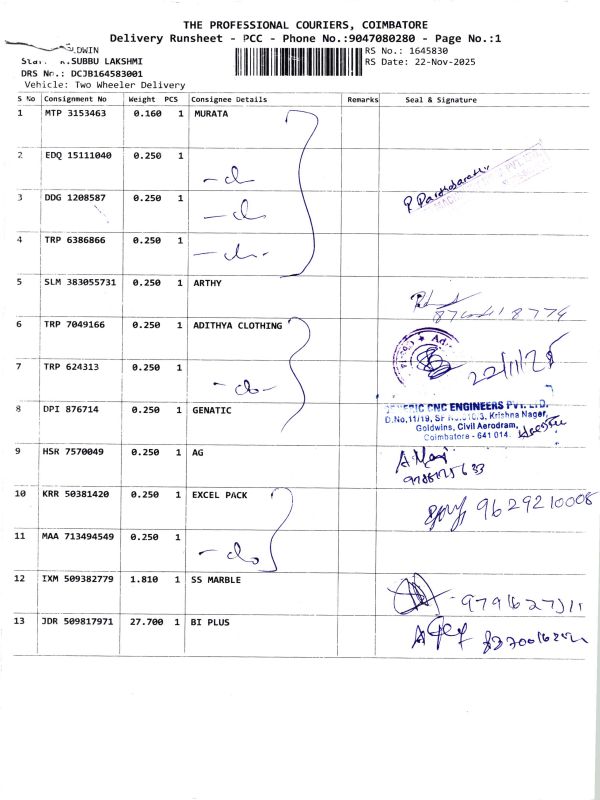 THE PROFESSIONAL COURIERS, COIMBATORE
Delivery Runsheet - PCC - Phone No.:9047080280 - Page No.:1
LDWIN
RS No.: 1645830
SUBBU LAKSHMI
RS Date: 22-Nov-2025
DRS No.: DCJB164583001
Vehicle: Two Wheeler Delivery
S No Consignment No Weight PCS Consignee Details Remarks Seal & Signature
1 MTP 3153463 0.160 1 MURATA
2 EDQ 15111040 0.250 1
- do
3 DDG 1208587 0.250 1
- do
4 TRP 6386866 0.250 1
- do -
5 SLM 383055731 0.250 1 ARTHY
6 TRP 7049166 0.250 1 ADITHYA CLOTHING
7 TRP 624313 0.250 1
- do - 22/11/25
8 DPI 876714 0.250 1 GENATIC
CNC ENGINEERS PVT. LTD.
D.No,11/19, Krishna Nager,
Goldwins, Civil Aerodram,
Coimbatore - 641 014.
9 HSR 7570049 0.250 1 AG
10 KRR 50381420 0.250 1 EXCEL PACK
9629210008
11 MAA 713494549 0.250 1
- do
12 IXM 509382779 1.810 1 SS MARBLE
13 JDR 509817971 27.700 1 BI PLUS